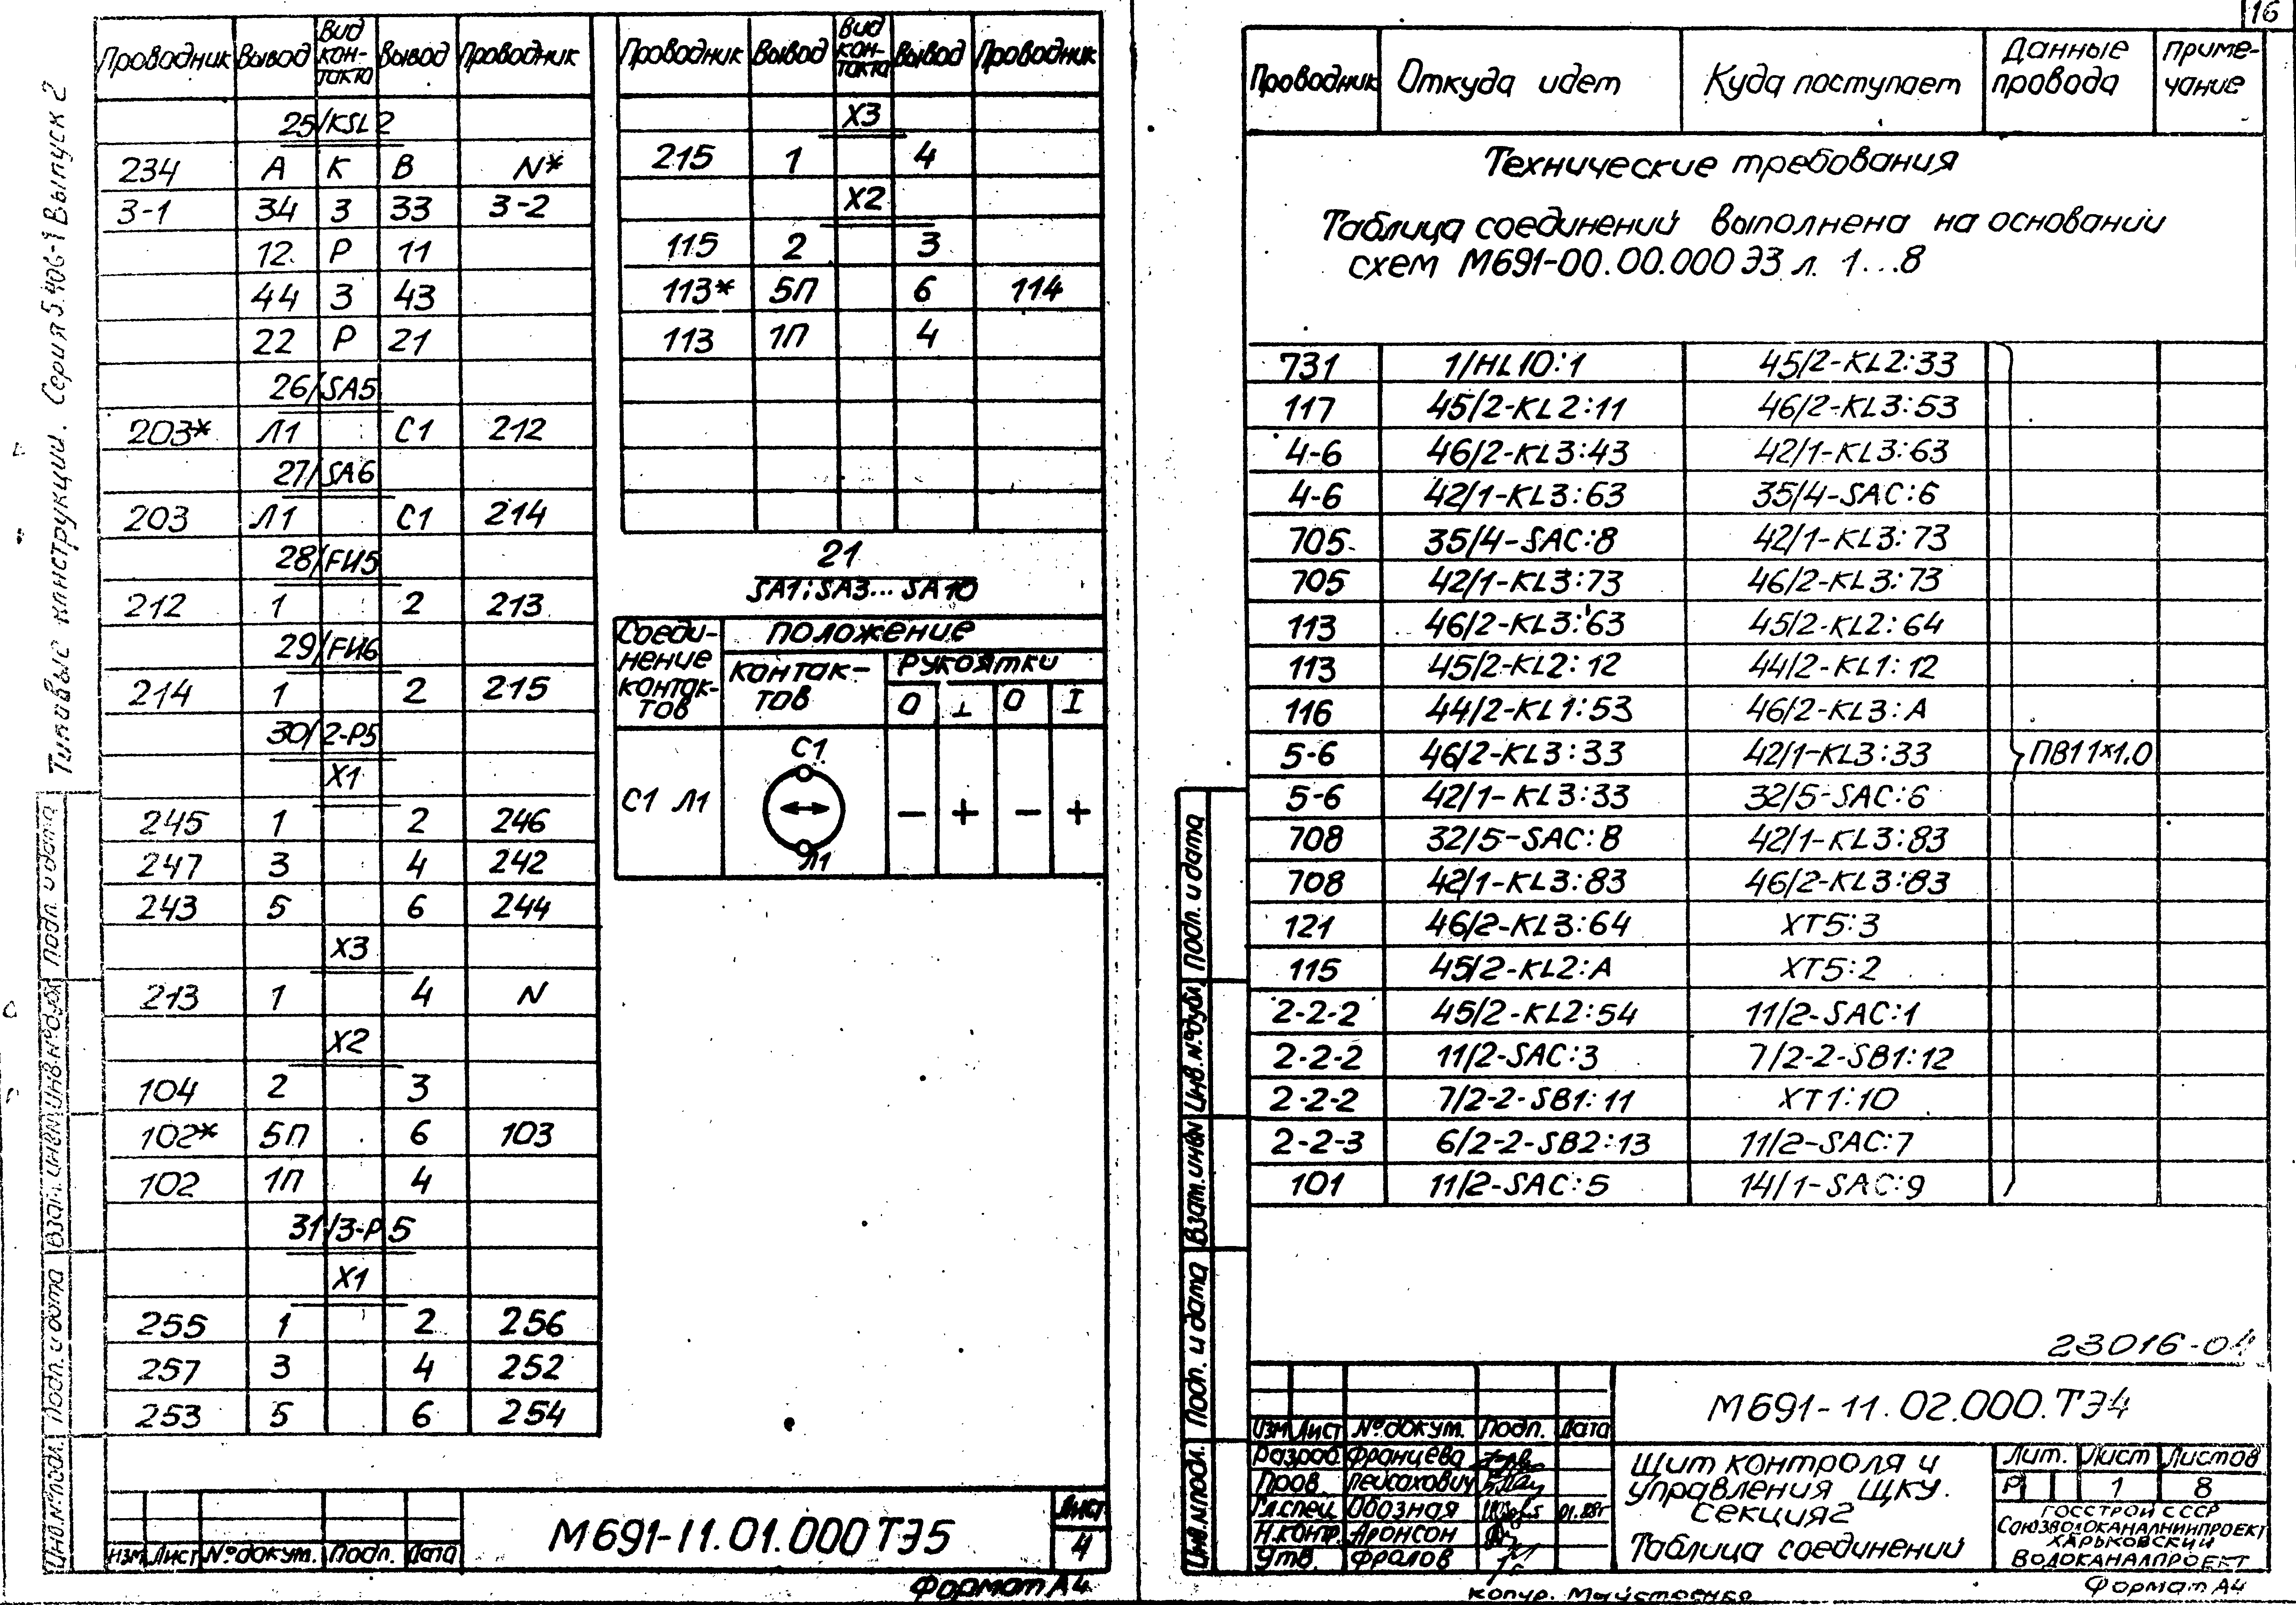 Типовые конструкции. Серия 5.406-1 Выпуск 2
Проводник Вывод Вид кон-такта Вывод Проводник
25/KSL2
234 А К В N*
3-1 34 З 33 3-2
12 Р 11
44 З 43
22 Р 21
26/SA5
203* Л1 С1 212
27/SA6
203 Л1 С1 214
28/FU5
212 1 2 213
29/FU6
214 1 2 215
30/2-P5
X1
245 1 2 246
247 3 4 242
243 5 6 244
X3
213 1 4 N
X2
104 2 3
102* 5П 6 103
102 1П 4
31/3-P5
X1
255 1 2 256
257 3 4 252
253 5 6 254
Проводник Вывод Вид кон-такта Вывод Проводник
X3
215 1 4
X2
115 2 3
113* 5П 6 114
113 1П 4
21
SA1; SA3...SA10
Соеди-нение контак-тов
положение
контак-тов
рукоятки
0 ⊥ 0 I
С1 Л1
С1
Л1
− + − +
Подп. и дата
Инв.№дубл
Взам.инв№
Подп. и дата
Инв.№подл.
Изм Лист №докум. Подп. Дата
М691-11.01.000ТЭ5
Лист
4
Формат А4
16
Проводник Откуда идет Куда поступает Данные провода Приме-чание
Технические требования
Таблица соединений выполнена на основании
схем М691-00.00.000 Э3 л. 1...8
731 1/HL10:1 45/2-KL2:33
117 45/2-KL2:11 46/2-KL3:53
4-6 46/2-KL3:43 42/1-KL3:63
4-6 42/1-KL3:63 35/4-SAC:6
705 35/4-SAC:8 42/1-KL3:73
705 42/1-KL3:73 46/2-KL3:73
113 46/2-KL3:63 45/2-KL2:64
113 45/2-KL2:12 44/2-KL1:12
116 44/2-KL1:53 46/2-KL3:A
5-6 46/2-KL3:33 42/1-KL3:33 ПВ1 1×1.0
5-6 42/1-KL3:33 32/5-SAC:6
708 32/5-SAC:8 42/1-KL3:83
708 42/1-KL3:83 46/2-KL3:83
121 46/2-KL3:64 XT5:3
115 45/2-KL2:A XT5:2
2-2-2 45/2-KL2:54 11/2-SAC:1
2-2-2 11/2-SAC:3 7/2-2-SB1:12
2-2-2 7/2-2-SB1:11 XT1:10
2-2-3 6/2-2-SB2:13 11/2-SAC:7
101 11/2-SAC:5 14/1-SAC:9
23016-04
Подп. и дата
Инв.№дубл
Взам.инв№
Подп. и дата
Инв.№подл.
М691-11.02.000.ТЭ4
Изм Лист №докум. Подп. Дата
Разраб. Францева
Пров. Пейсахович
Гл.спец. Обозная 01.88г
Н.контр. Аронсон
Утв. Фролов
Щит контроля и
управления ЩКУ.
Секция 2
Таблица соединений
Лит. Лист Листов
Р 1 8
ГОССТРОЙ СССР
СОЮЗВОДОКАНАЛНИИПРОЕКТ
ХАРЬКОВСКИЙ
ВОДОКАНАЛПРОЕКТ
Копир.
Формат А4